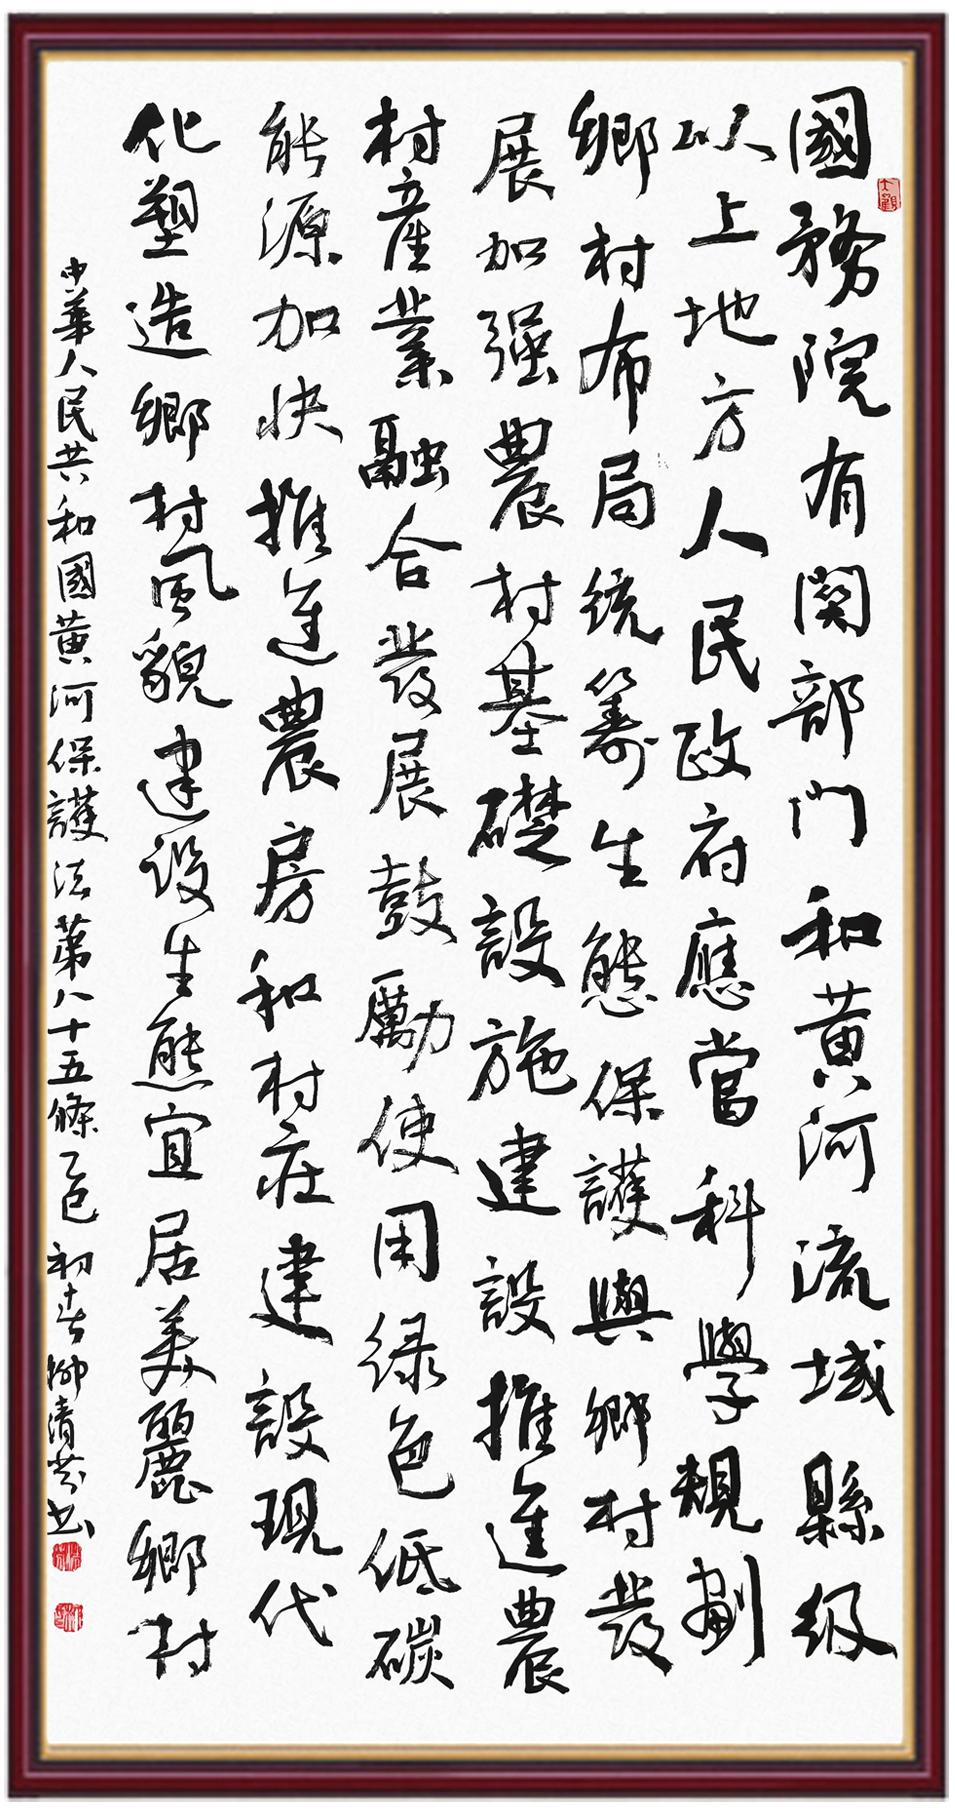 國務院有関部門和黄河流域縣级
以上地方人民政府應當科學規劃
鄉村布局統籌生態保護與鄉村發
展加强農村基礎設施建設推進農
村産業融合發展鼓勵使用绿色低碳
能源加快推進農房和村莊建設現代
化塑造鄉村風貌建设生態宜居美麗鄉村
中華人民共和國黄河保護法第八十五條乙巳初春柳清芬书
大觀